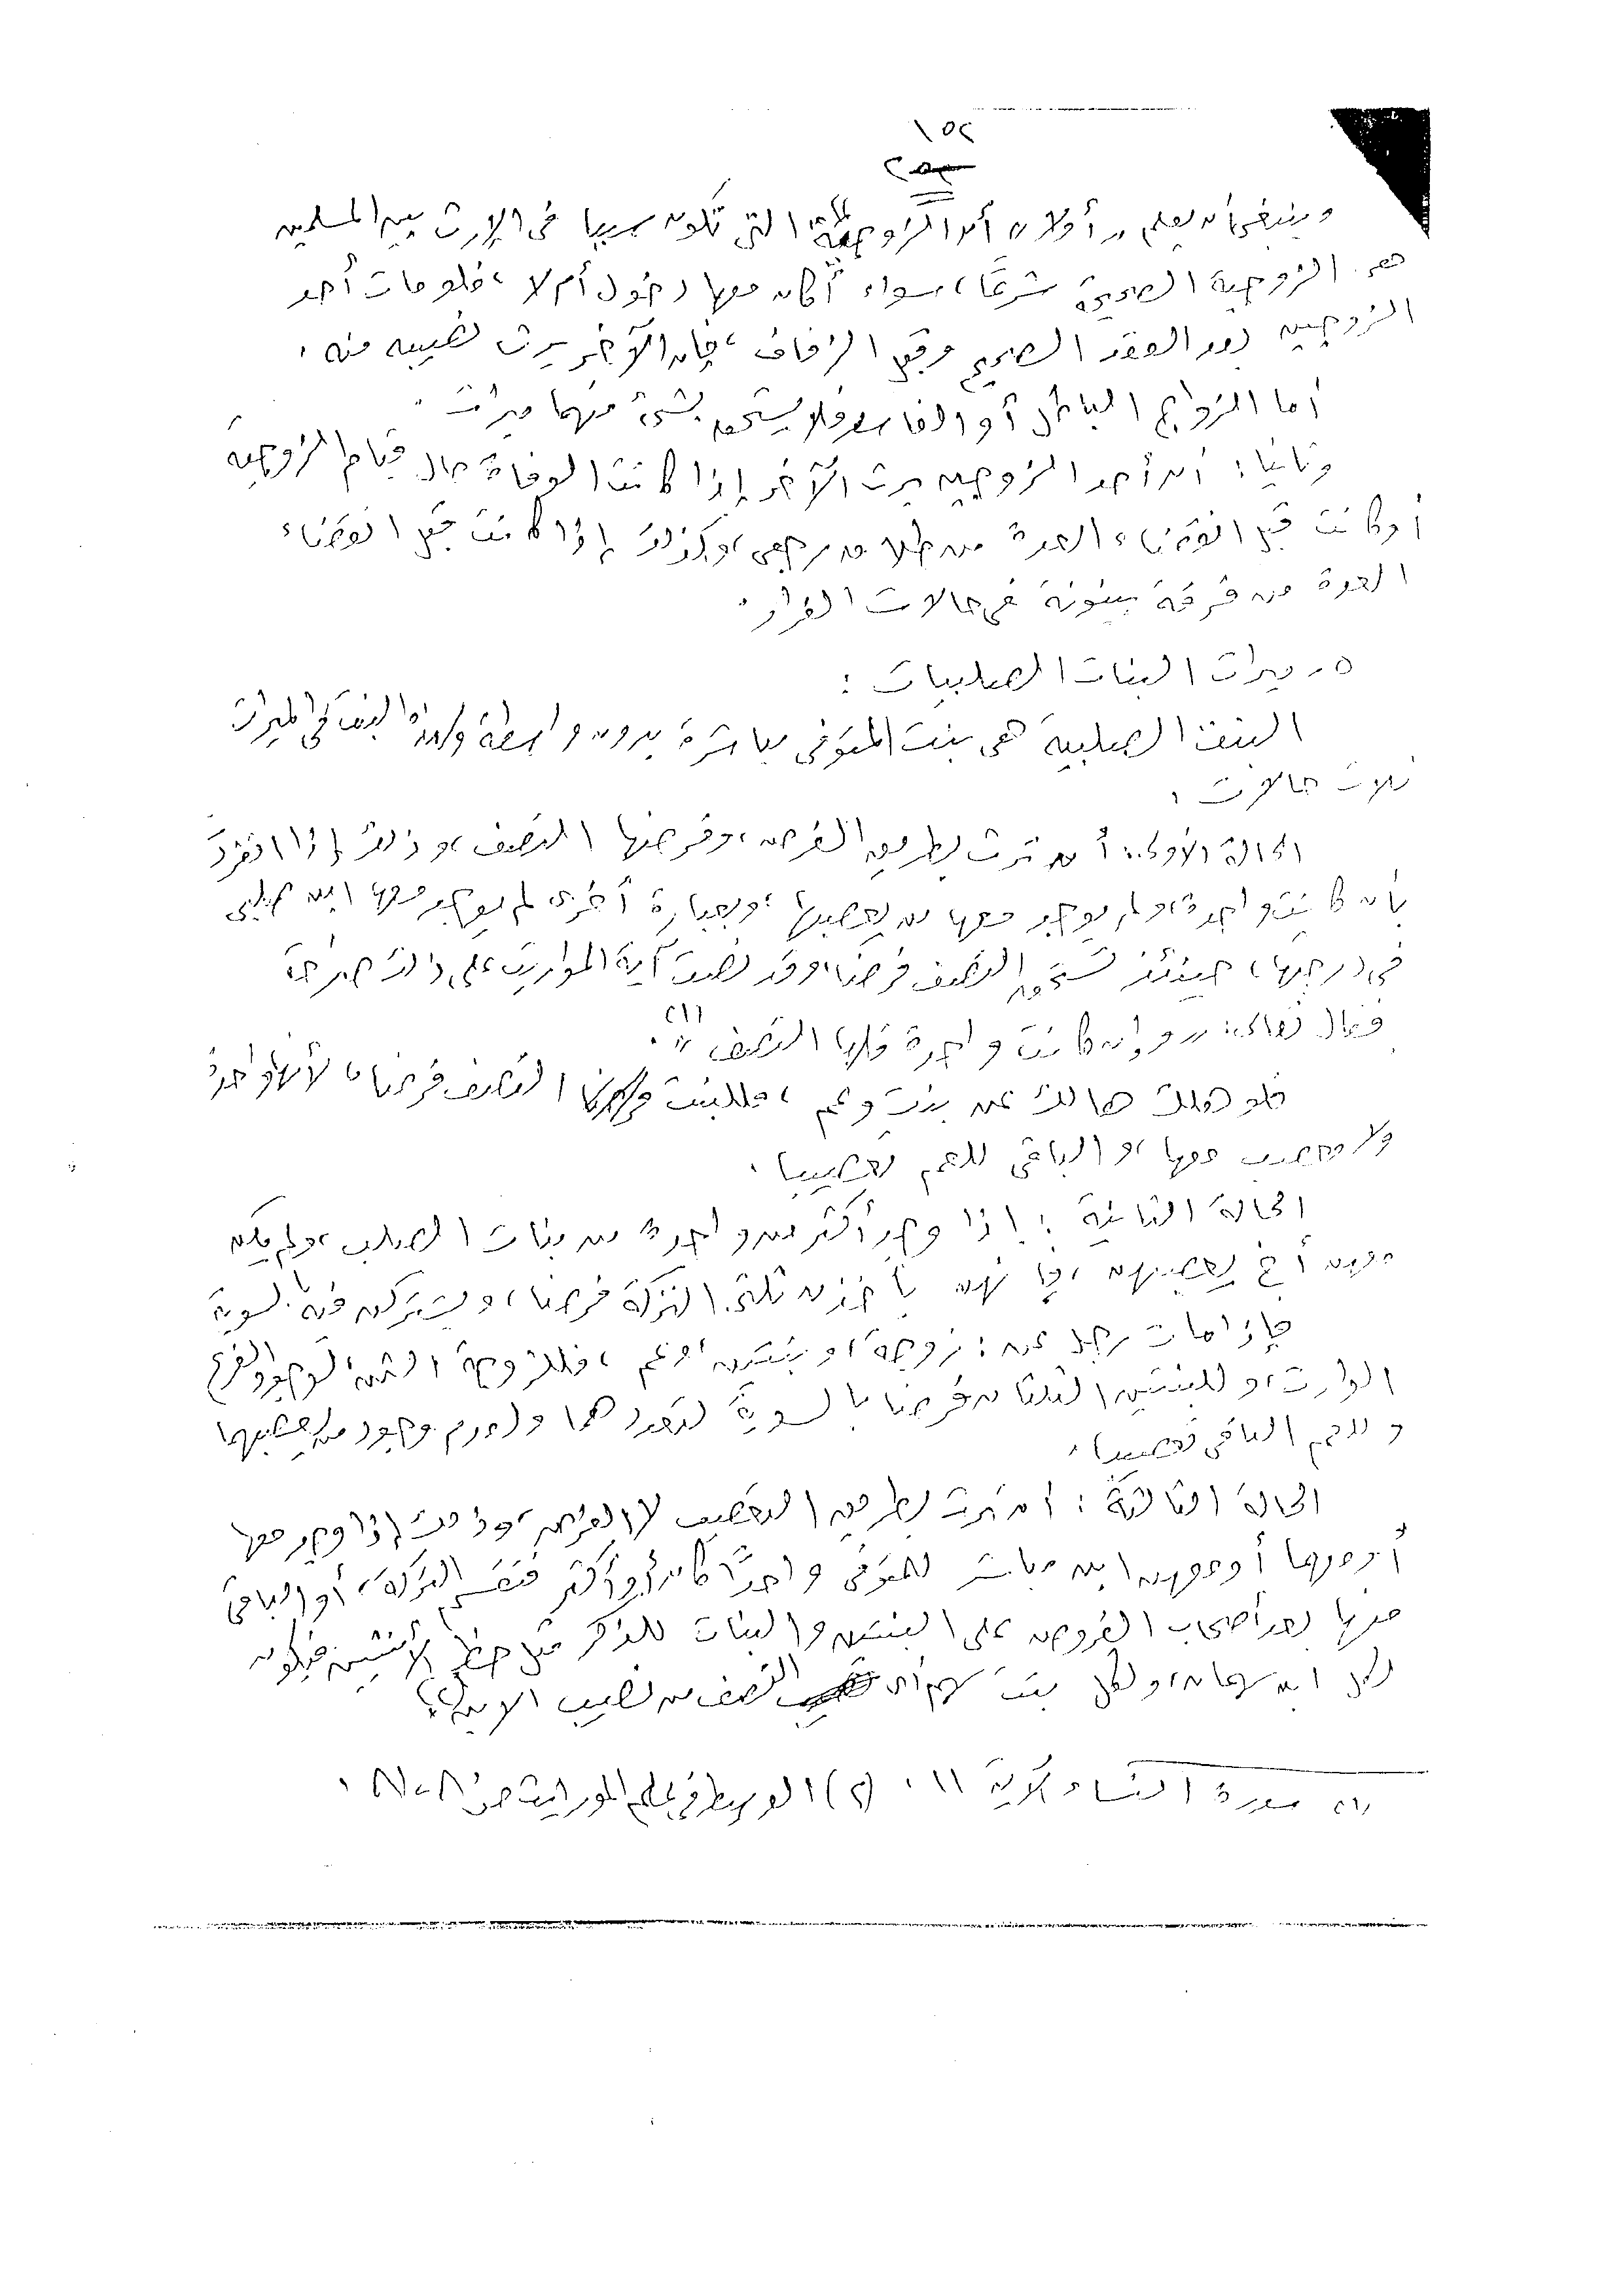 ١٥٢
وينبغى أن يعلم " أولا " أن الزوجية التى تكون سببا فى الإرث بين المسلمين
هى الزوجية الصحيحة شرعًا، سواء أكان معها دخول أم لا، فلو مات أحد
الزوجين بعد العقد الصحيح وقبل الزفاف، فإن الآخر يرث نصيبه منه.
أما الزواج الباطل أو الفاسد فلا يستحق بشئ منهما ميراث.
وثانيا: أن أحد الزوجين يرث الآخر إذا كانت الوفاة حال قيام الزوجية
أو كانت قبل انقضاء العدة من طلاق رجعى، وكذلك إذا كانت قبل انقضاء
العدة من فرقة بينونة فى حالات الفرار.
٥ - ميراث البنات الصلبيات :
البنت الصلبية هى بنت المتوفى مباشرة بدون واسطة ولهذه البنت فى الميراث
ثلاث حالات.
الحالة الأولى: أن ترث بطريق الفرض، وفرضها النصف، وذلك إذا انفردت
بأن كانت واحدة، ولم يوجد معها من يعصبها، وبعبارة أخرى لم يوجد معها ابن صلبى
فى درجتها، حينئذ تستحق النصف فرضا، وقد نصت آية المواريث على ذلك صراحة
فقال تعالى: " وإن كانت واحدة فلها النصف ". (١)
فلو هلك هالك عن بنت وعم، فللبنت النصف فرضا، لأنها واحدة
ولا معصب معها، والباقى للعم تعصيبا.
الحالة الثانية : إذا وجد أكثر من واحدة من بنات الصلب، ولم يكن
معهن أخ يعصبهن، فإنهن يأخذن ثلثى التركة فرضا، ويشتركن فيه بالسوية
فإذا مات رجل عن : زوجة، وبنتين، وعم، فللزوجة الثمن لوجود الفرع
الوارث، وللبنتين الثلثان فرضا بالسوية لتعددهما ولعدم وجود من يعصبهما
وللعم الباقى تعصيبا.
الحالة الثالثة : أن ترث بطريق التعصيب لا الفرض، وذلك إذا وجد معها
أو معهما أو معهن ابن مباشر للمتوفى واحدًا كان أو أكثر فتقسم التركة، أو الباقى
منها بعد أصحاب الفروض على البنين والبنات للذكر مثل حظ الأنثيين فيكون
لكل ابن سهمان، ولكل بنت سهم أى النصف من نصيب الابن (٢)
(١) سورة النساء الآية ١١. (٢) الوسيط فى علم المواريث ص